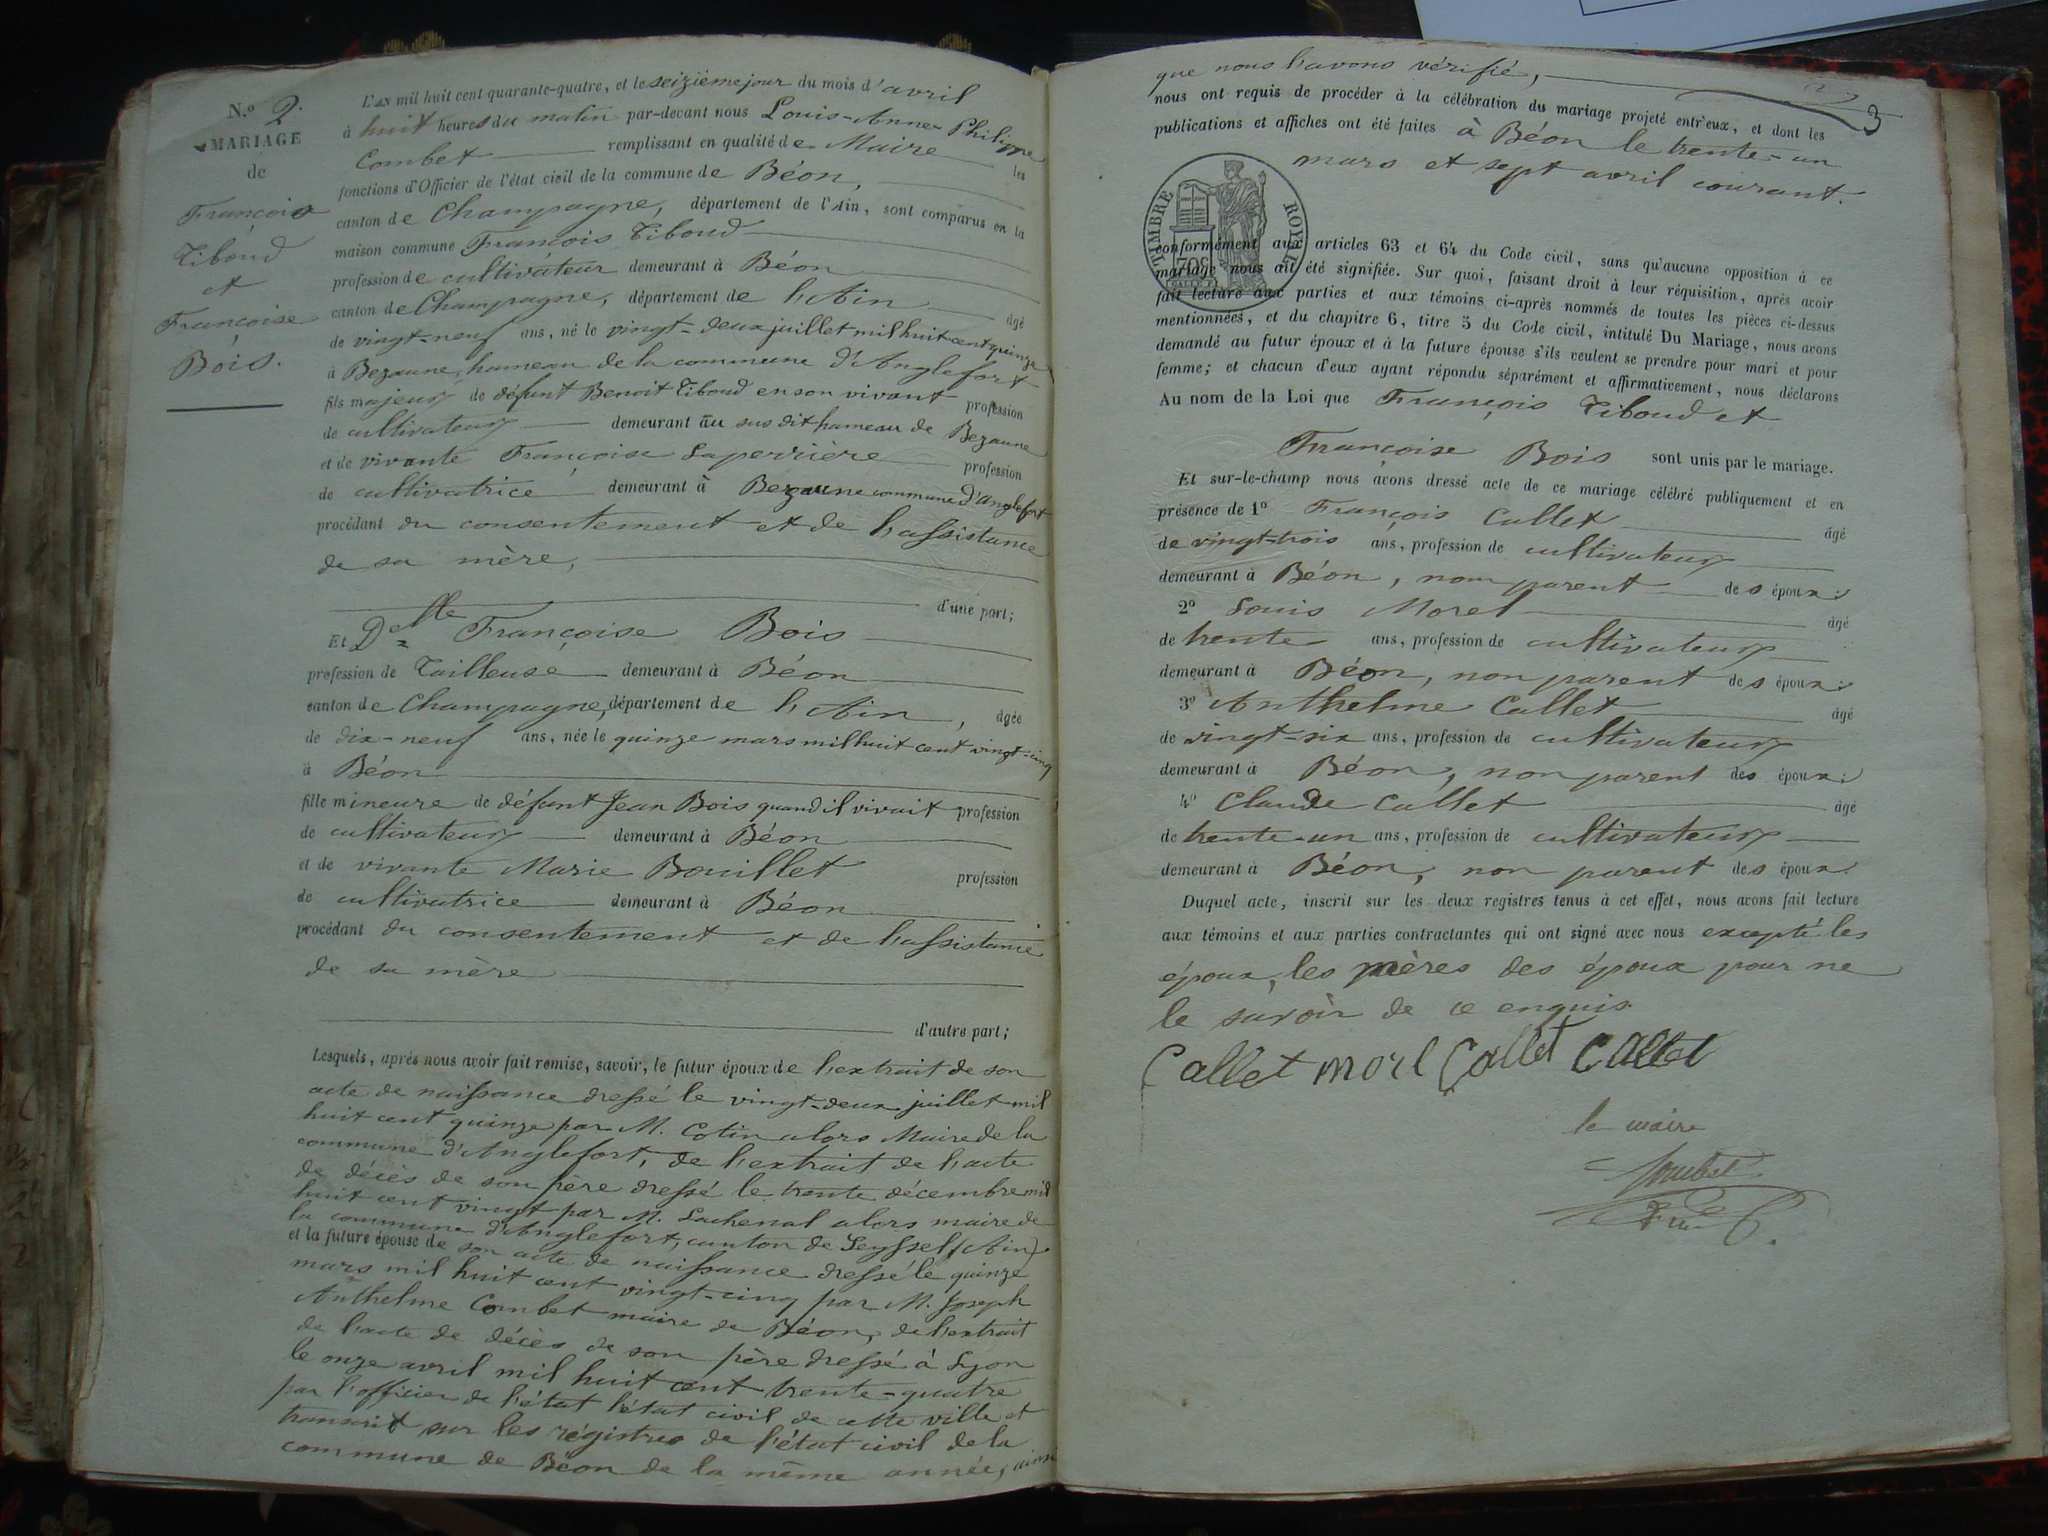 N.o 2.
MARIAGE
de
François
Tiboud
et
Françoise
Bois.
L'AN mil huit cent quarante-quatre, et le seizième jour du mois d'avril
à huit heures du matin par-devant nous Louis-Anne-Philippe
Combet remplissant en qualité de Maire les
fonctions d'Officier de l'état civil de la commune de Béon,
canton de Champagne, département de l'Ain, sont comparus en la
maison commune François Tiboud
profession de cultivateur demeurant à Béon
canton de Champagne, département de l'Ain âgé
de vingt-neuf ans, né le vingt-deux juillet mil huit cent quinze
à Bezaune, hameau de la commune d'Anglefort
fils majeur de défunt Benoit Tiboud en son vivant profession
de cultivateur demeurant au sus dit hameau de Bezaune
et de vivante Françoise Laperrière profession
de cultivatrice demeurant à Bezaune commune d'Anglefort
procédant du consentement et de l'assistance
de sa mère,
d'une part;
Et Delle Françoise Bois
profession de Tailleuse demeurant à Béon
canton de Champagne, département de l'Ain, âgée
de dix-neuf ans, née le quinze mars mil huit cent vingt-cinq
à Béon
fille mineure de défunt Jean Bois quand il vivait profession
de cultivateur demeurant à Béon
et de vivante Marie Bouillet profession
de cultivatrice demeurant à Béon
procédant du consentement et de l'assistance
de sa mère
d'autre part;
Lesquels, après nous avoir fait remise, savoir, le futur époux de l'extrait de son
acte de naissance dressé le vingt-deux juillet mil
huit cent quinze par M. Cotin alors Maire de la
commune d'Anglefort, de l'extrait de l'acte
de décès de son père dressé le trente décembre mil
huit cent vingt par M. Lachenal alors maire de
la commune d'Anglefort, canton de Seyssel (Ain)
et la future épouse de son acte de naissance dressé le quinze
mars mil huit cent vingt-cinq par M. Joseph
Anthelme Combet maire de Béon, de l'extrait
de l'acte de décès de son père dressé à Lyon
le onze avril mil huit cent trente-quatre
par l'officier de l'état l'état civil de cette ville et
transcrit sur les régistres de l'état civil de la
commune de Béon de la même année, ainsi
que nous l'avons vérifié,
3
nous ont requis de procéder à la célébration du mariage projeté entr'eux, et dont les
publications et affiches ont été faites à Béon le trente-un
mars et sept avril courant.
TIMBRE ROYAL
70c
conformément aux articles 63 et 64 du Code civil, sans qu'aucune opposition à ce
mariage nous ait été signifiée. Sur quoi, faisant droit à leur réquisition, après avoir
fait lecture aux parties et aux témoins ci-après nommés de toutes les pièces ci-dessus
mentionnées, et du chapitre 6, titre 5 du Code civil, intitulé Du Mariage, nous avons
demandé au futur époux et à la future épouse s'ils veulent se prendre pour mari et pour
femme; et chacun d'eux ayant répondu séparément et affirmativement, nous déclarons
Au nom de la Loi que François Tiboud et
Françoise Bois sont unis par le mariage.
Et sur-le-champ nous avons dressé acte de ce mariage célébré publiquement et en
présence de 1o François Callet âgé
de vingt-trois ans, profession de cultivateur
demeurant à Béon, non parent des époux;
2o Louis Morel âgé
de trente ans, profession de cultivateur
demeurant à Béon, non parent des époux;
3o Anthelme Callet âgé
de vingt-six ans, profession de cultivateur
demeurant à Béon, non parent des époux;
4o Claude Callet âgé
de trente-un ans, profession de cultivateur
demeurant à Béon, non parent des époux.
Duquel acte, inscrit sur les deux registres tenus à cet effet, nous avons fait lecture
aux témoins et aux parties contractantes qui ont signé avec nous excepté les
époux, les mères des époux pour ne
le savoir de ce enquis
Callet morel Callet Callet
le maire
Combet